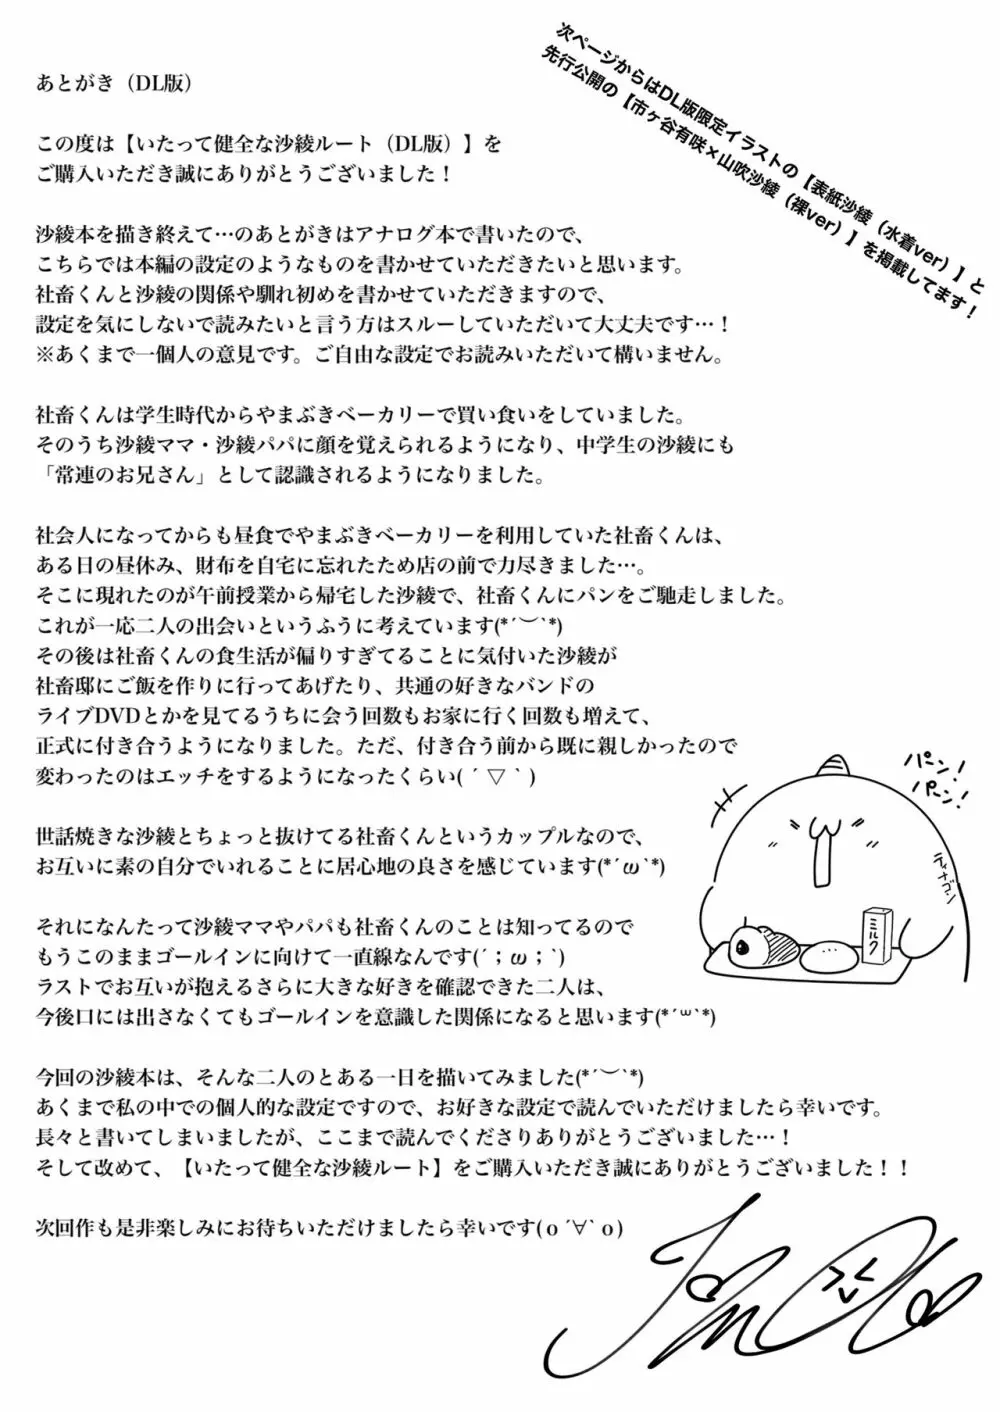 次ページからはDL版限定イラストの【表紙沙綾（水着ver）】と
先行公開の【市ヶ谷有咲×山吹沙綾（裸ver）】を掲載してます！
あとがき（DL版）
この度は【いたって健全な沙綾ルート（DL版）】を
ご購入いただき誠にありがとうございました！
沙綾本を描き終えて…のあとがきはアナログ本で書いたので、
こちらでは本編の設定のようなものを書かせていただきたいと思います。
社畜くんと沙綾の関係や馴れ初めを書かせていただきますので、
設定を気にしないで読みたいと言う方はスルーしていただいて大丈夫です…！
※あくまで一個人の意見です。ご自由な設定でお読みいただいて構いません。
社畜くんは学生時代からやまぶきベーカリーで買い食いをしていました。
そのうち沙綾ママ・沙綾パパに顔を覚えられるようになり、中学生の沙綾にも
「常連のお兄さん」として認識されるようになりました。
社会人になってからも昼食でやまぶきベーカリーを利用していた社畜くんは、
ある日の昼休み、財布を自宅に忘れたため店の前で力尽きました…。
そこに現れたのが午前授業から帰宅した沙綾で、社畜くんにパンをご馳走しました。
これが一応二人の出会いというふうに考えています(*´︶`*)
その後は社畜くんの食生活が偏りすぎてることに気付いた沙綾が
社畜邸にご飯を作りに行ってあげたり、共通の好きなバンドの
ライブDVDとかを見てるうちに会う回数もお家に行く回数も増えて、
正式に付き合うようになりました。ただ、付き合う前から既に親しかったので
変わったのはエッチをするようになったくらい( ´ ▽ ` )
世話焼きな沙綾とちょっと抜けてる社畜くんというカップルなので、
お互いに素の自分でいれることに居心地の良さを感じています(*´ω`*)
それになんたって沙綾ママやパパも社畜くんのことは知ってるので
もうこのままゴールインに向けて一直線なんです(´；ω；`)
ラストでお互いが抱えるさらに大きな好きを確認できた二人は、
今後口には出さなくてもゴールインを意識した関係になると思います(*´꒳`*)
今回の沙綾本は、そんな二人のとある一日を描いてみました(*´︶`*)
あくまで私の中での個人的な設定ですので、お好きな設定で読んでいただけましたら幸いです。
長々と書いてしまいましたが、ここまで読んでくださりありがとうございました…！
そして改めて、【いたって健全な沙綾ルート】をご購入いただき誠にありがとうございました！！
次回作も是非楽しみにお待ちいただけましたら幸いです(ｏ´∀`ｏ)
パーン！
パーン！
ミルク